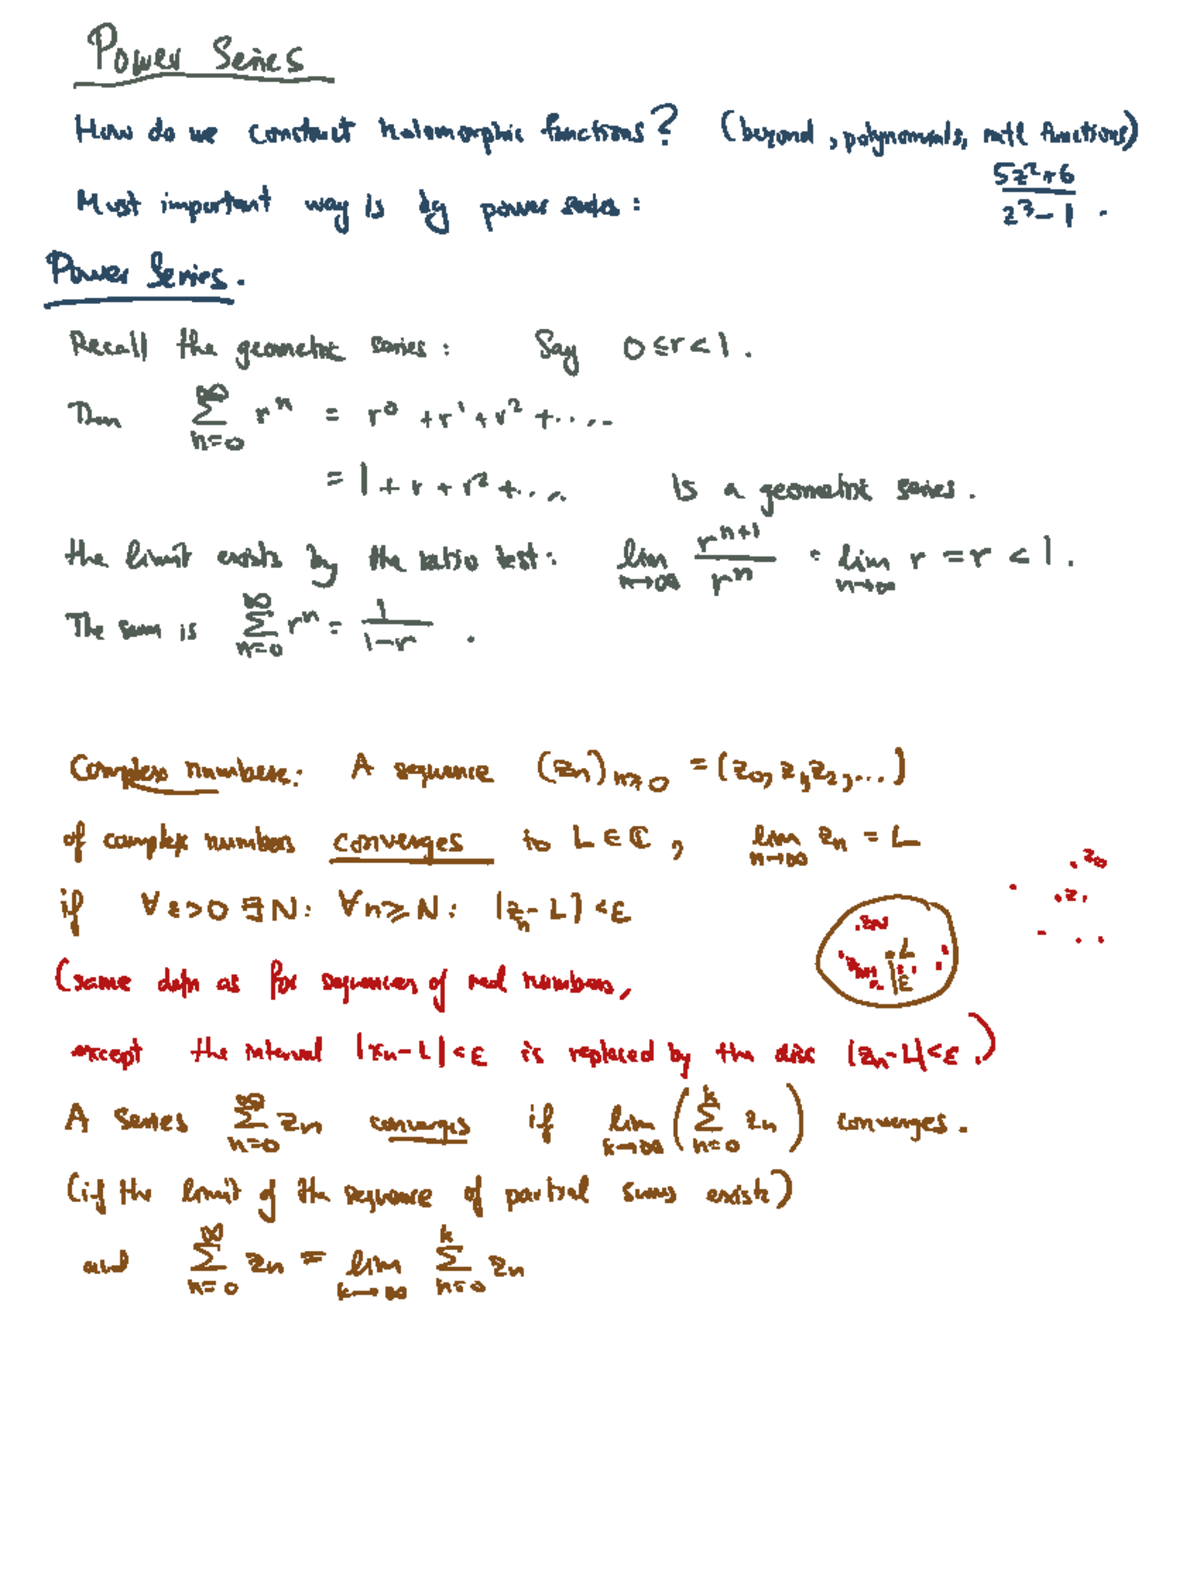 Power Series
How do we construct holomorphic functions? (beyond, polynomials, rat'l functions)
5z²+6 / z³-1 .
Most important way is by power series:
Power Series.
Recall the geometric series: Say 0 ≤ r < 1.
Then ∑_{n=0}^{∞} r^n = r^0 + r^1 + r^2 + ....
= 1 + r + r^2 + ... is a geometric series.
the limit exists by the ratio test: lim_{n→∞} r^{n+1} / r^n = lim_{n→∞} r = r < 1.
The sum is ∑_{n=0}^{∞} r^n = 1 / 1-r .
Complex numbers: A sequence (z_n)_{n≥0} = (z_0, z_1, z_2, ...)
of complex numbers converges to L ∈ ℂ, lim_{n→∞} z_n = L
.z_0
if ∀ε>0 ∃N: ∀n≥N: |z_n - L| < ε
.z_1
.z_N
.L
z_{N+1}
ε
(same defn as for sequences of real numbers,
except the interval |x_n - L| < ε is replaced by the disc |z_n - L| < ε.)
A series ∑_{n=0}^{∞} z_n converges if lim_{k→∞} (∑_{n=0}^{k} z_n) converges.
(if the limit of the sequence of partial sums exists)
and ∑_{n=0}^{∞} z_n = lim_{k→∞} ∑_{n=0}^{k} z_n